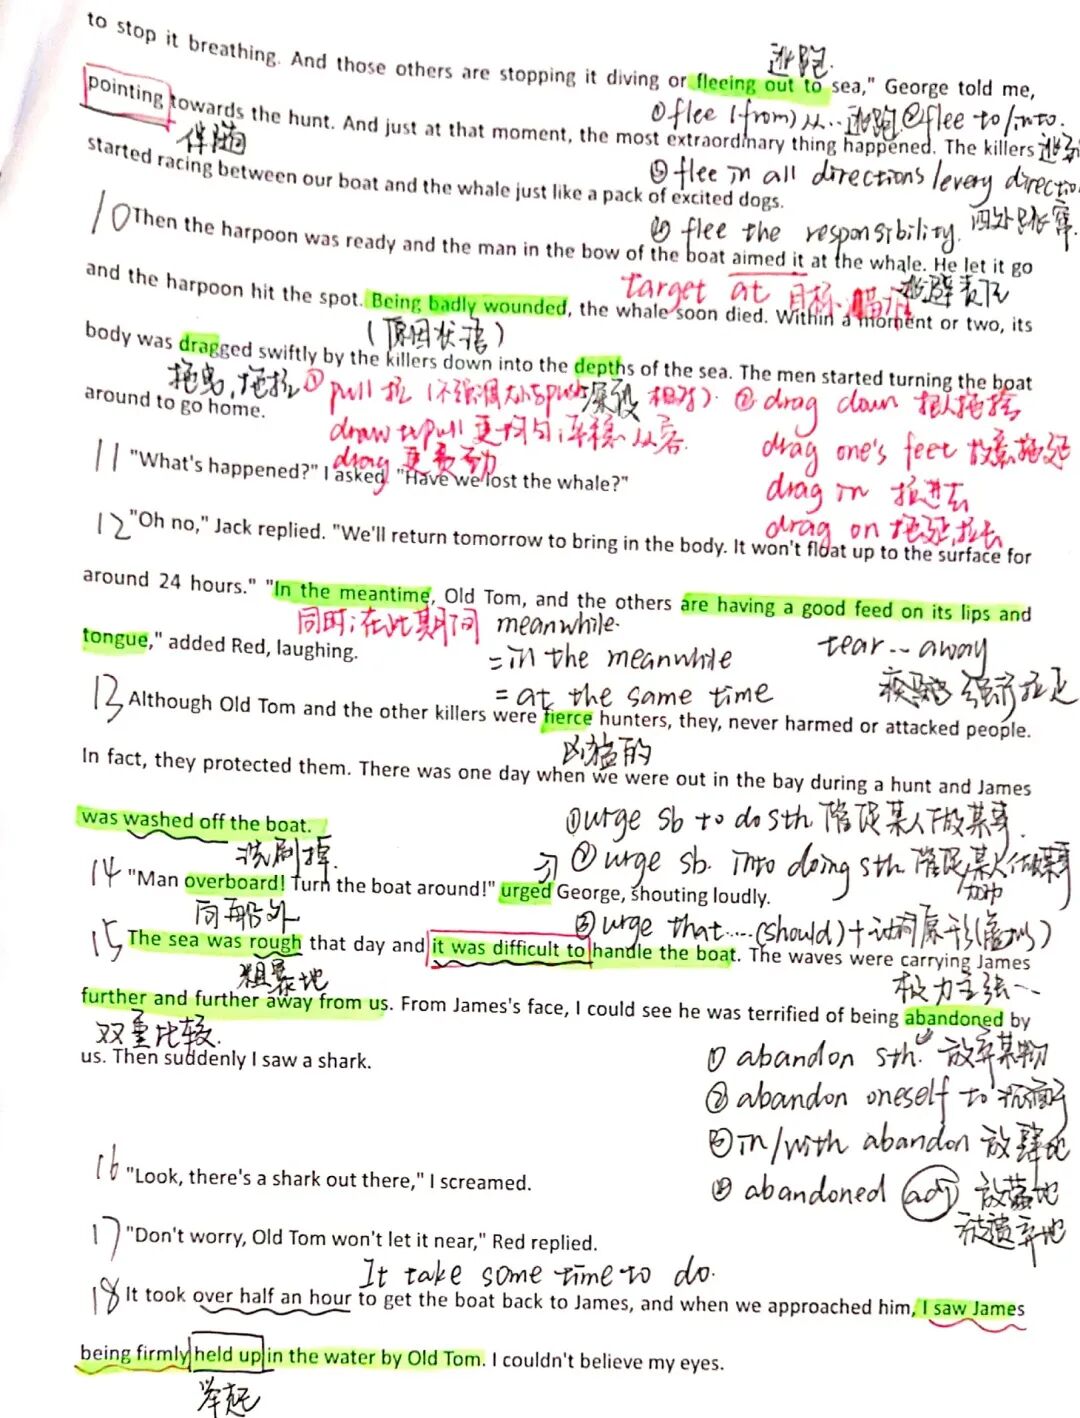 to stop it breathing. And those others are stopping it diving or fleeing out to sea," George told me,
逃跑.
pointing towards the hunt. And just at that moment, the most extraordinary thing happened. The killers
①flee (from) 从…逃跑 ②flee to/into.
伴随
started racing between our boat and the whale just like a pack of excited dogs.
③ flee in all directions/every direction
四处逃窜
10 Then the harpoon was ready and the man in the bow of the boat aimed it at the whale. He let it go
④ flee the responsibility.
逃避责任
target at 目标、瞄准
and the harpoon hit the spot. Being badly wounded, the whale soon died. Within a moment or two, its
(原因状语)
body was dragged swiftly by the killers down into the depths of the sea. The men started turning the boat
拖曳,拖拉
深处
① pull 拉 (不强调大小与push相对)
② drag down 把人拖垮
around to go home.
draw 比pull 更均匀,平稳、从容
drag one's feet 故意拖延
drag 更费劲
11 "What's happened?" I asked. "Have we lost the whale?"
drag in 拉进去
drag on 拖延,拉长
12 "Oh no," Jack replied. "We'll return tomorrow to bring in the body. It won't float up to the surface for
around 24 hours." "In the meantime, Old Tom, and the others are having a good feed on its lips and
同时;在此期间 meanwhile.
tongue," added Red, laughing.
= in the meanwhile
tear -- away
= at the same time
13 Although Old Tom and the other killers were fierce hunters, they, never harmed or attacked people.
凶猛的
In fact, they protected them. There was one day when we were out in the bay during a hunt and James
was washed off the boat.
①urge sb to do sth 催促某人做某事.
洗刷掉.
② urge sb. into doing sth 催促某人做某事
14 "Man overboard! Turn the boat around!" urged George, shouting loudly.
向船外
③ urge that……(should)+动词原形(虚拟)
15 The sea was rough that day and it was difficult to handle the boat. The waves were carrying James
粗暴地
极力主张…
further and further away from us. From James's face, I could see he was terrified of being abandoned by
双重比较.
us. Then suddenly I saw a shark.
① abandon sth. 放弃某物
② abandon oneself to 沉湎于
③ in/with abandon 放肆地
16 "Look, there's a shark out there," I screamed.
④ abandoned adj 放荡地
被遗弃地
17 "Don't worry, Old Tom won't let it near," Red replied.
It take some time to do.
18 It took over half an hour to get the boat back to James, and when we approached him, I saw James
being firmly held up in the water by Old Tom. I couldn't believe my eyes.
举起